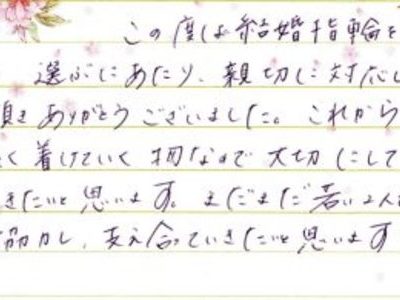 この度は結婚指輪を
選ぶにあたり、親切に対応し
頂きありがとうございました。これから
く着けていく物なので大切にして
きたいと思います。まだまだ若い2人
協力し、支え合っていきたいと思います